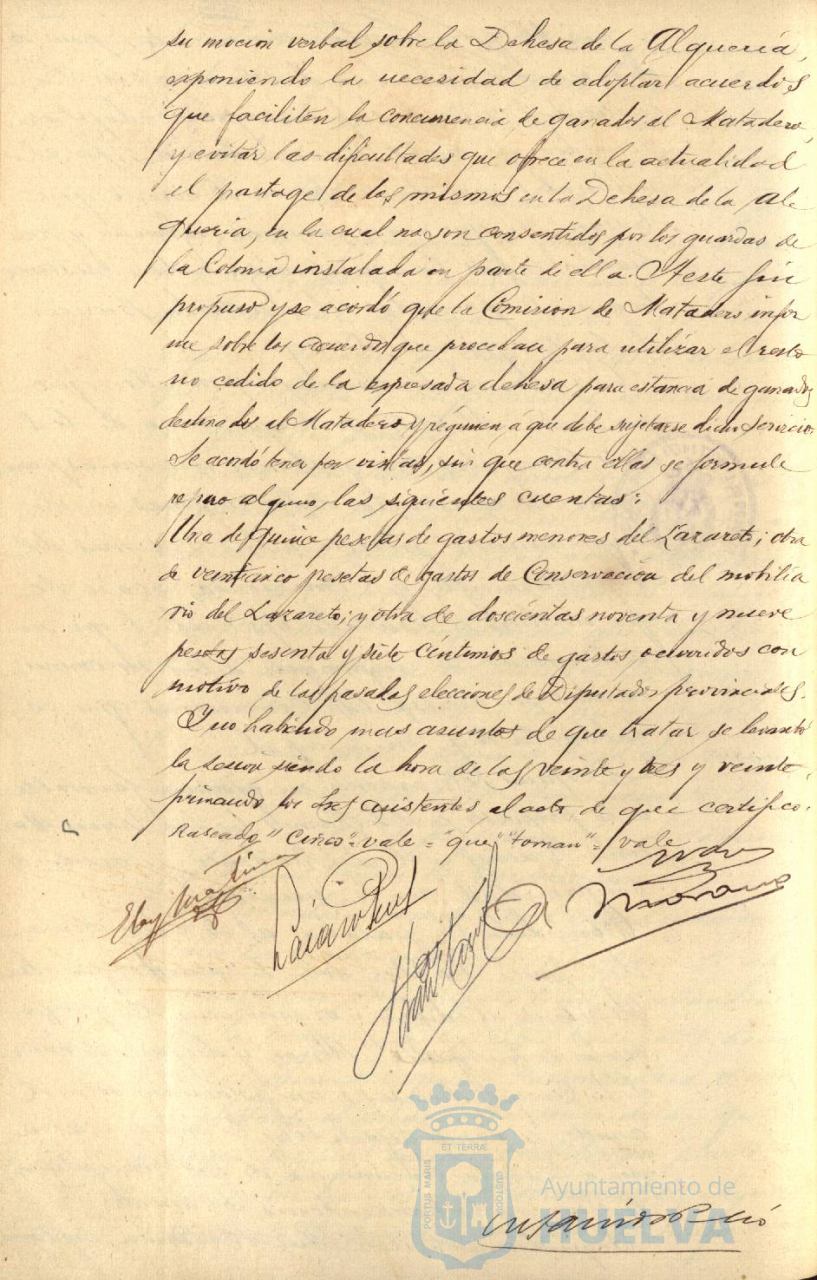 su moción verbal sobre la Dehesa de la Alquería,
exponiendo la necesidad de adoptar acuerdos
que faciliten la concurrencia de ganados al Matadero,
y evitar las dificultades que ofrece en la actualidad
el pastage de los mismos en la Dehesa de la Al
quería, en la cual no son consentidos por los guardas de
la Colonia instalada en parte de ella. A este fin
propuso y se acordó que la Comision de Matadero infor
me sobre los acuerdos que procedan para utilizar el resto
no cedido de la expresada dehesa para estancia de ganados
destinados al Matadero y régimen á que debe sujetarse dicho servicio.
Se acordó tener por vistas, sin que contra ellas se formule
reparo alguno, las siguientes cuentas:
Una de quince pesetas de gastos menores del Lazareto; otra
de veinticinco pesetas de gastos de Conservación del mobilia
rio del Lazareto; y otra de doscientas noventa y nueve
pesetas sesenta y siete céntimos de gastos ocurridos con
motivo de las pasadas elecciones de Diputados provinciales.
Y no habiendo mas asuntos de que tratar se levantó
la sesion siendo la hora de las veinte y tres y veinte,
firmando los Sres asistentes al acto de que certifico.
Raseado "Cinco" = vale = "que" "toman" = vale
Eloy
Moreno
ET TERRÆ
PORTUS MARIS
CUSTODIA
Ayuntamiento de
HUELVA